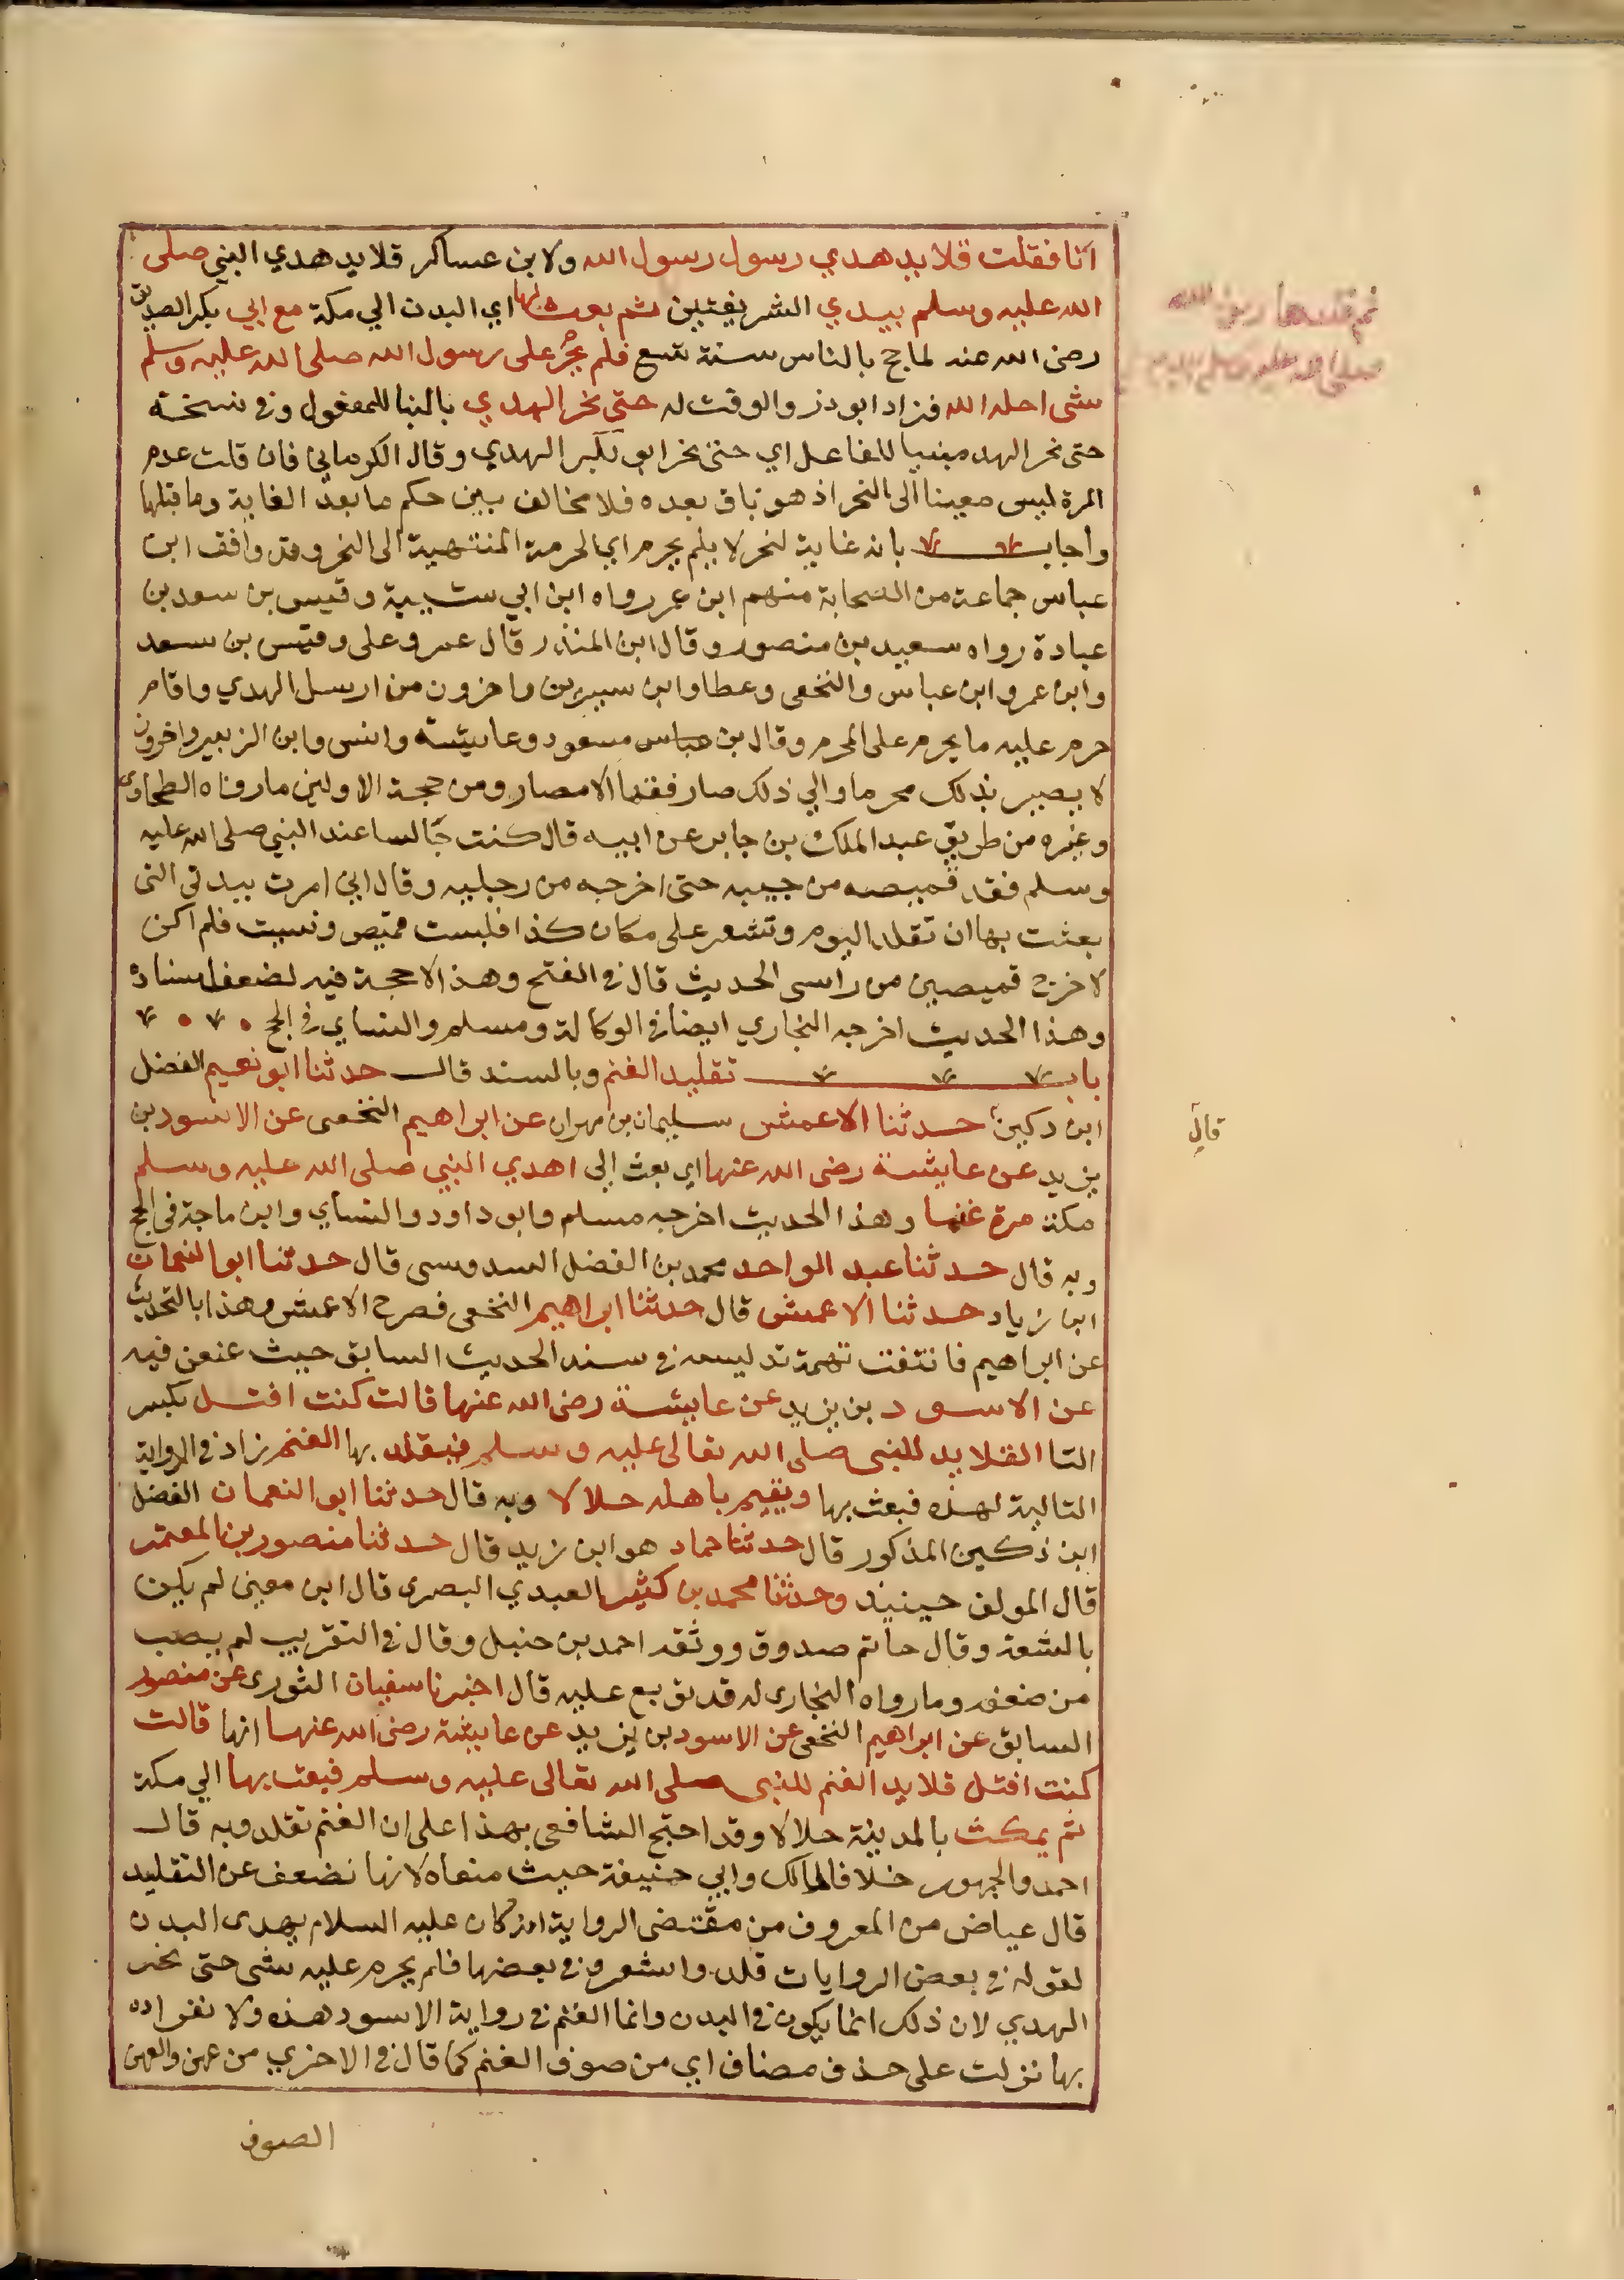 انا فقلت قلايد هدي رسول رسول الله ولابن عساكر قلايد هدي النبي صلى
الله عليه وسلم بيدي الشريفتين ثم بعث بها اي البدن الي مكة مع ابي بكر الصديق
رضي الله عنه لما حج بالناس سنة تسع فلم يحرم على رسول الله صلى الله عليه وسلم
شي احله الله فزاد ابو ذر والوقت له حتى نحر الهدي بالبنا للمفعول وفي نسخة
حتى نحر الهد مبنيا للفاعل اي حتى نحر ابو بكر الهدي وقال الكرماني فان قلت عدم
المرة ليس معينا الى النحر اذ هو باق بعده فلا مخالف بين حكم ما بعد الغاية وما قبلها
واجاب بانه غاية لنحر لا يلم يحرم اي الحرمة المنتهية الى النحر وقد وافق ابن
عباس جماعة من الصحابة منهم ابن عمر رواه ابن ابي شيبة وقيس بن سعد بن
عبادة رواه سعيد بن منصور وقال ابن المنذر قال عمر وعلى وقيس بن سعد
وابن عمر وابن عباس والنخعى وعطا وابن سيرين واخرون من ارسل الهدي واقام
حرم عليه ما يحرم على المحرم وقال بن عباس مسعود وعايشة وانس وابن الزبير واخرون
لا يصير بذلك محرما والي ذلك صار فقها الامصار ومن حجة الاولين ما رواه الطحاوى
وغيره من طريق عبد الملك بن جابر عن ابيه قال كنت جالسا عند النبي صلى الله عليه
وسلم فقد قميصه من جيبه حتى اخرجه من رجليه وقال اني امرت ببدني التى
بعثت بها ان تقلد اليوم وتشعر على مكان كذا فلبست قميص ونسيت فلم اكن
لاخرج قميصين من راسى الحديث قال في الفتح وهذا لا حجة فيه لضعف اسناده
وهذا الحديث اخرجه البخاري ايضا في الوكالة ومسلم والنساي في الحج
باب تقليد الغنم وبالسند قال حدثنا ابو نعيم الفضل
ابن دكين حدثنا الاعمش سليمان بن مهران عن ابراهيم النخعى عن الاسود بن
قال
يزيد عن عايشة رضى الله عنها اي بعث إلى اهدي النبي صلى الله عليه وسلم
مكة مرة غنما وهذا الحديث اخرجه مسلم وابو داود والنساي وابن ماجة في الحج
وبه قال حدثنا عبد الواحد محمد بن الفضل السدوسى قال حدثنا ابو النعمان
ابن زياد حدثنا الاعمش قال حدثنا ابراهيم النخعى فصرح الاعمش وهذا بالتحديث
عن ابراهيم فانتفت تهمة تدليسه في سند الحديث السابق حيث عنعن فيه
عن الاسود بن يزيد عن عايشة رضى الله عنها قالت كنت افتل بكسر
التا القلايد للنبى صلى الله تعالى عليه وسلم فيقلد بها الغنم زاد في الرواية
التالية لهذه فبعث بها ويقيم باهله حلالا وبه قال حدثنا ابو النعمان الفضل
ابن ذكين المذكور قال حدثنا حماد هو ابن زيد قال حدثنا منصور بن المعتمر
قال المولف حينيذ وحدثنا محمد بن كثير العبدي البصرى قال ابن معين لم يكن
بالشعة وقال حاتم صدوق ووثقه احمد بن حنبل وقال في التقريب لم يصب
من ضعفه وما رواه البخارى له قد توبع عليه قال اخبرنا سفيان الثورى عن منصور
السابق عن ابراهيم النخعى عن الاسود بن يزيد عن عايشة رضى الله عنها انها قالت
كنت افتل قلايد الغنم للنبى صلى الله تعالى عليه وسلم فيبعث بها الي مكة
ثم يمكث بالمدينة حلالا وقد احتج الشافعى بهذا على ان الغنم تقلد وبه قال
احمد والجمهور خلافا لمالك وابي حنيفة حيث منعاه لانها تضعف عن التقليد
قال عياض من المعروف من مقتضى الرواية انه كان عليه السلام يهدى البدن
لقوله في بعض الروايات قلد واشعر وفي بعضها فلم يحرم عليه شى حتى نحر
الهدي لان ذلك انما يكون في البدن وانما الغنم في رواية الاسود هذه ولانفراده
بها نزلت على حذف مضاف اي من صوف الغنم كما قال في الاخري من عهن والعهن
الصوف